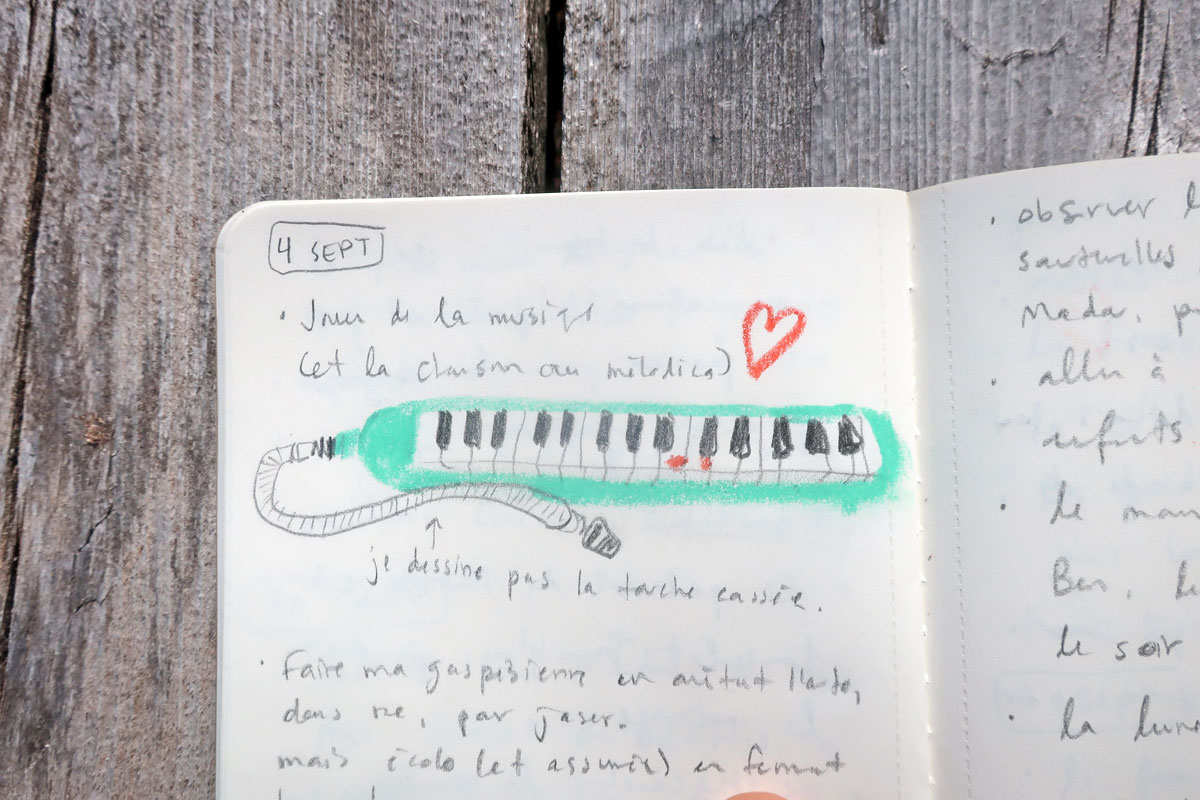 4 SEPT
• Jouer de la musique
(et la chanson au mélodica)
je dessine pas la touche cassée.
• Faire ma gaspésienne en arrêtant l'auto,
dans rue, par jaser.
mais écolo (et assumée) en fermant
• observer
sauterelles
Mada.
• aller à
• le
Ben.
le soir
• la lune